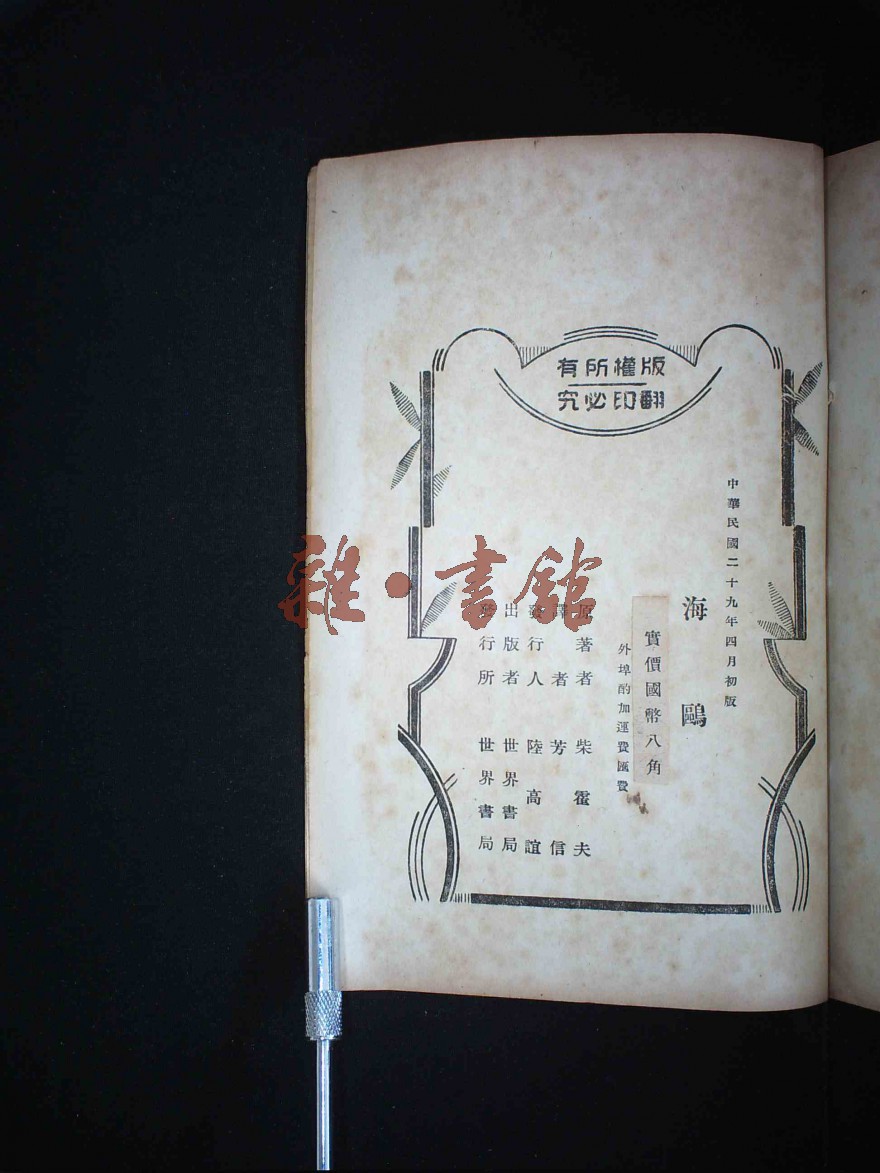 版權所有
翻印必究
中華民國二十九年四月初版
海鷗
實價國幣八角
外埠酌加運費匯費
原著者 柴霍夫
譯者 芳信
發行人 陸高誼
出版者 世界書局
發行所 世界書局
雜·書館